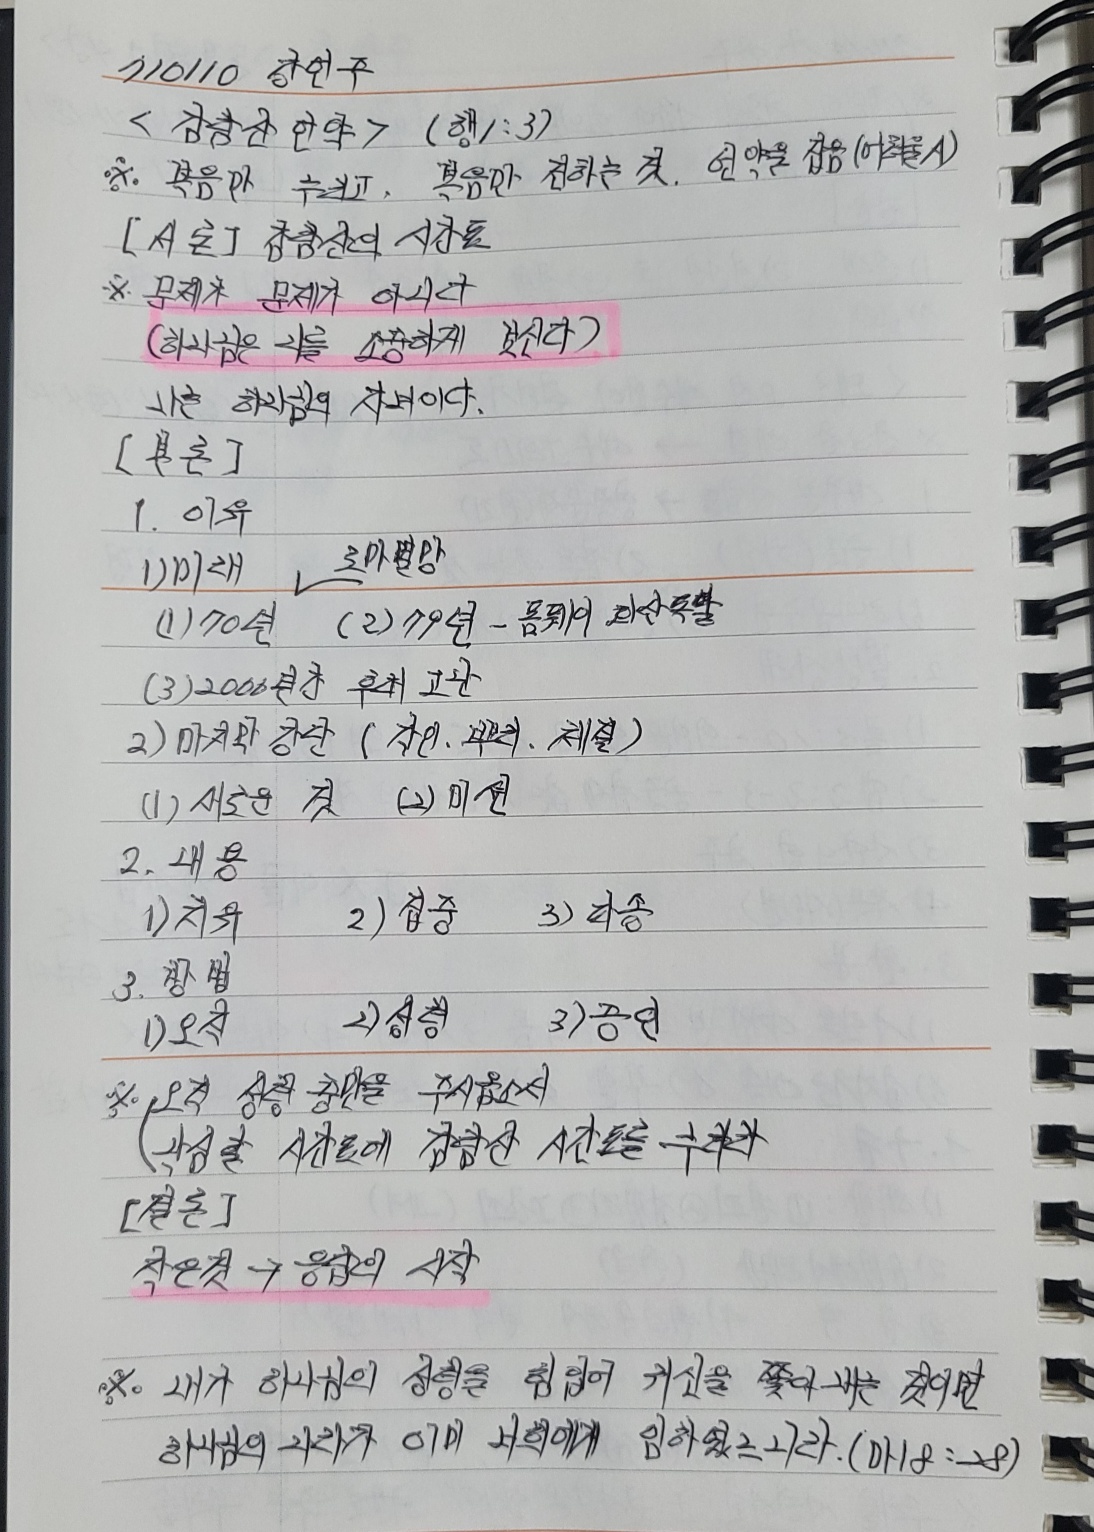 210110 강언주
< 감람산 언약 > (행1:3)
※ 복음만 누리고, 복음만 전하는 것. 언약을 잡음
[서론] 감람산의 시간표
※ 문제가 문제가 아니다
(하나님은 나를 소중하게 보신다)
나는 하나님의 자녀이다.
[본론]
1. 이유
1) 미래 로마멸망
(1) 70년 (2) 79년 - 폼페이 화산폭발
(3) 200여년간 후에
2) 마지막 강단 (각인. 뿌리. 체질)
(1) 새로운 것 (2) 미션
2. 내용
1) 치유 2) 집중 3) 작종
3. 방법
1) 오직 2) 성령 3) 증인
※ 오직 성령 충만을 주시옵소서
낙심할 시간표에 감람산 시간표를 누려라
[결론]
작은것 → 응답의 시작
※ 내가 하나님의 성령을 힘입어 귀신을 쫓아내는 것이면
하나님의 나라가 이미 너희에게 임하였느니라. (마18:28)